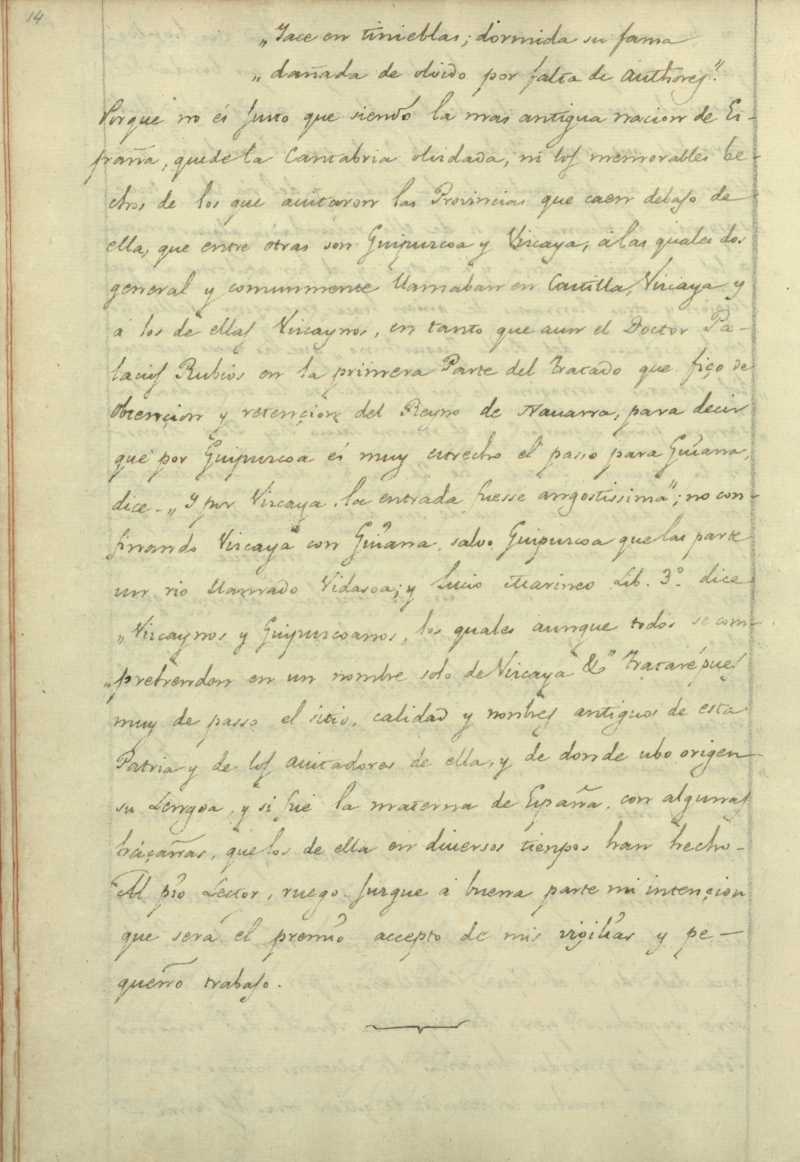 14
„Iace en tinieblas; dormida su fama
„dañada de olvido por falta de authores".
Porque no és Justo que siendo la mas antigua nacion de Es-
paña, quede la Cantabria olvidada, ni los memorables he-
chos de los que auitaron las Provincias que caen debajo de
ella, que entre otras son Guipuzcoa y Vizcaya, á las quales dos
general y comunmente llamaban en Castilla, Vizcaya y
á los de ellas Vizcaynos, en tanto que aun el Doctor Pa-
lacios Rubios en la primera Parte del Tratado que fiço de
obtençion y retençion del Reyno de Nauarra, para decir
que por Guipuzcoa és muy estrecho el passo para Guiana,
dice - „Y por Vizcaya, la entrada fuesse angostissima"; no con-
finando Vizcaya con Guiana, salvo Guipuzcoa que las parte
un rio llamado Vidasoa; y Lucio Marineo Lib. 3º dice
„Vizcaynos y Guipuzcoanos, los quales aunque todos se com-
„prehenden en un nombre solo de Vizcaya &" Trataré pues
muy de passo el sitio, calidad y nombres antiguos de esta
Patria y de los auitadores de ella, y de donde ubo origen
su Lengoa, y si fué la materna de España, con algunas
haçañas, que los de ella en diversos tienpos han hecho-
Al pio Lector, ruego Juzgue á buena parte mi intençion
que será el premio accepto de mis vigilias y pe-
queño trabajo.